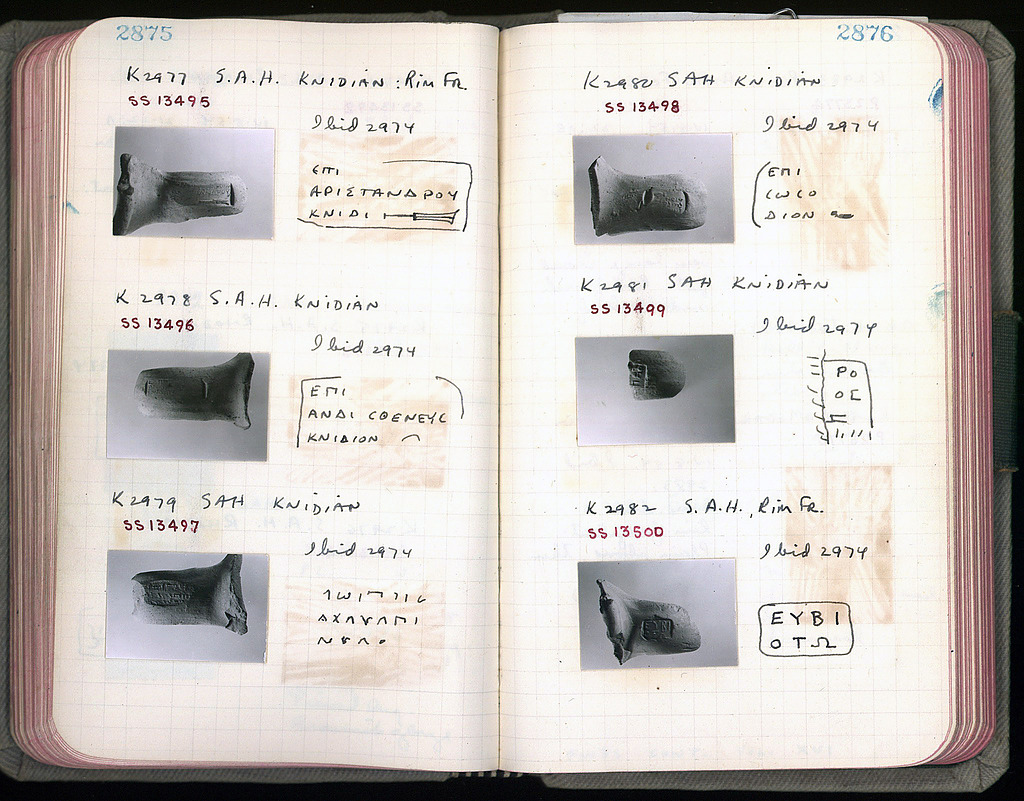 2875
K 2977 S.A.H. KNIDIAN: Rim Fr.
SS 13495
Ibid 2974
ΕΠΙ
ΑΡΙΣΤΑΝΔΡΟΥ
ΚΝΙΔΙ
K 2978 S.A.H. KNIDIAN
SS 13496
Ibid 2974
ΕΠΙ
ΚΝΙΔΙΟΝ
K 2979 SAH KNIDIAN
SS 13497
Ibid 2974
2876
K 2980 SAH KNIDIAN
SS 13498
Ibid 2974
ΕΠΙ
CωCΟ
ΔΙΟΝ
K 2981 SAH KNIDIAN
SS 13499
Ibid 2974
ΡΟ
ΟΣ
K 2982 S.A.H., Rim Fr.
SS 13500
Ibid 2974
ΕΥΒΙ
ΟΤΩ